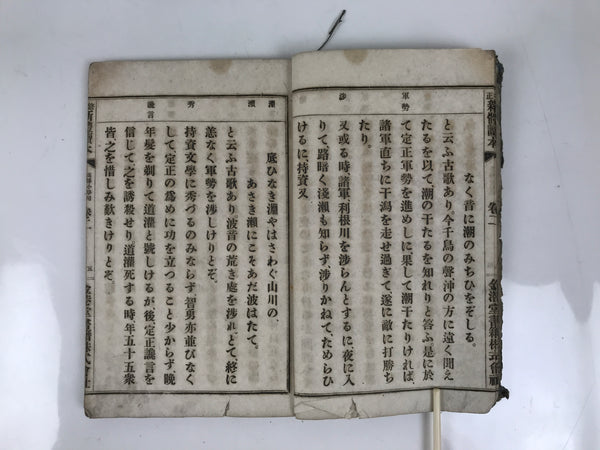 なく音に潮のみちひをぞしる。
と云ふ古歌あり今千鳥の聲沖の方に遠く聞え
たるを以て潮の干たるを知れりと答ふ是に於
て定正軍勢を進めしに果して潮干たりければ、
諸軍直ちに干潟を走せ過ぎて遂に敵に打勝ち
たり。
又或る時諸軍利根川を渉らんとするに、夜に入
りて路暗く淺瀬も知らず、渉りかねて、ためらひ
けるに、持資又
軍勢
渉
卷二
底ひなき淵やはさわぐ山川の、
あさき瀬にこそあだ波はたて。
と云ふ古歌あり波音の荒き處を渉れとて、終に
恙なく軍勢を渉しけりとぞ、
持資文學に秀づるのみならず、智勇亦並びなく
して定正の爲めに功を立つること少からず、晩
年髪を剃りて道灌と號しけるが、後定正讒言を
信じて之を誘殺せり道灌死する時年五十五衆
皆之を惜しみ歎きけりとぞ。
淵
瀬
秀
讒言